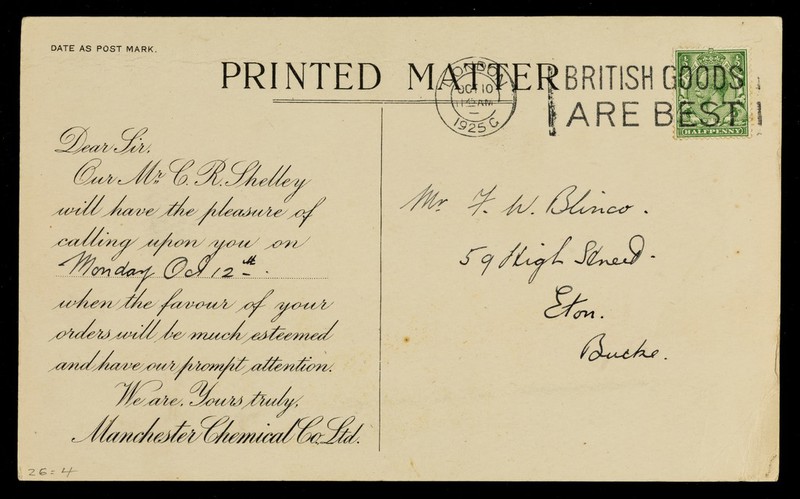 DATE AS POST MARK.
PRINTED MATTER
LONDON
OCT 10
11 45 AM
1925 C
BRITISH GOODS
ARE BEST
HALFPENNY
Dear Sir,
Our Mr C. R. Shelley
will have the pleasure of
calling upon you on
Monday Oct 12th.
when the favour of your
orders will be much esteemed
and have our prompt attention.
We are, Yours truly,
Manchester Chemical Co. Ltd.
Mr. F. W. Blinco.
59 High Street.
Eton.
Bucks.
26=4